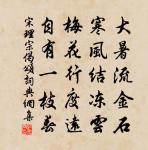 大暑流金石
寒風結凍雲
梅花行度遠
自有一枝春
宋理宗偈頌詞典網集